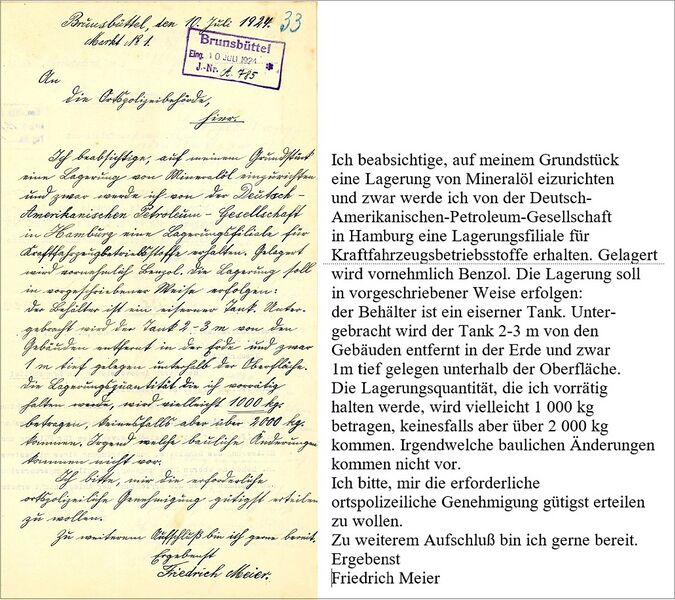 Brunsbüttel, den 10. Juli 1924.
33
Markt № 1.
Brunsbüttel
Eing. 10 JULI 1924 *
J.-Nr. A. 785
An
die Ortspolizeibehörde,
hier.
Ich beabsichtige, auf meinem Grundstück
eine Lagerung von Mineralöl einzurichten
und zwar werde ich von der Deutsch-
Amerikanischen Petroleum-Gesellschaft
in Hamburg eine Lagerungsfiliale für
Kraftfahrzeugbetriebsstoffe erhalten. Gelagert
wird vornehmlich Benzol. Die Lagerung soll
in vorgeschriebener Weise erfolgen:
der Behälter ist ein eiserner Tank. Unter-
gebracht wird der Tank 2-3 m von den
Gebäuden entfernt in der Erde und zwar
1 m tief gelegen unterhalb der Oberfläche.
Die Lagerungsquantität die ich vorrätig
halten werde, wird vielleicht 1000 kg.
betragen, keinesfalls aber über 2000 kg.
kommen. Irgend welche bauliche Änderungen
kommen nicht vor.
Ich bitte, mir die erforderliche
ortspolizeiliche Genehmigung gütigst erteilen
zu wollen.
Zu weiterem Aufschluß bin ich gerne bereit.
Ergebenst
Friedrich Meier.
Ich beabsichtige, auf meinem Grundstück
eine Lagerung von Mineralöl eizurichten
und zwar werde ich von der Deutsch-
Amerikanischen-Petroleum-Gesellschaft
in Hamburg eine Lagerungsfiliale für
Kraftfahrzeugsbetriebsstoffe erhalten. Gelagert
wird vornehmlich Benzol. Die Lagerung soll
in vorgeschriebener Weise erfolgen:
der Behälter ist ein eiserner Tank. Unter-
gebracht wird der Tank 2-3 m von den
Gebäuden entfernt in der Erde und zwar
1m tief gelegen unterhalb der Oberfläche.
Die Lagerungsquantität, die ich vorrätig
halten werde, wird vielleicht 1 000 kg
betragen, keinesfalls aber über 2 000 kg
kommen. Irgendwelche baulichen Änderungen
kommen nicht vor.
Ich bitte, mir die erforderliche
ortspolizeiliche Genehmigung gütigst erteilen
zu wollen.
Zu weiterem Aufschluß bin ich gerne bereit.
Ergebenst
Friedrich Meier